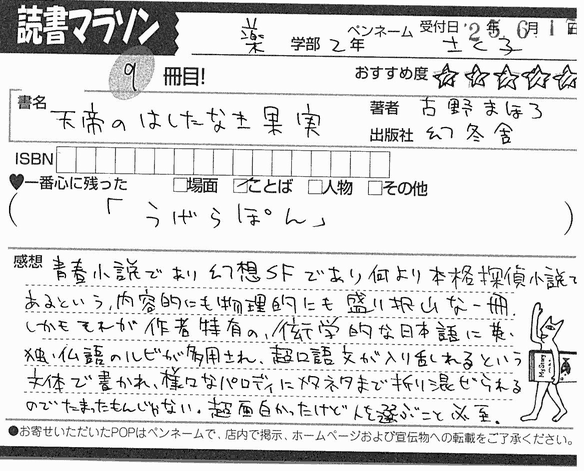 読書マラソン
薬 学部 2年 ペンネーム さとる 受付日 '25年6月1日
9 冊目! おすすめ度 ☆☆☆☆☆
書名 天帝のはしたなき果実 著者 古野まほろ
出版社 幻冬舎
ISBN
♥一番心に残った □場面 ☑ことば □人物 □その他
(「うげらぽん」)
感想 青春小説であり幻想SFであり何より本格探偵小説で
あるという、内容的にも物理的にも盛り沢山な一冊.
しかもそれが作者特有の、衒学的な日本語に英、
独、仏語のルビが多用され、超口語文が入り乱れるという
文体で書かれ、様々なパロディにメタネタまで折り混ぜられる
のでたまったもんじゃない. 超面白かったけど人を選ぶこと必至.
●お寄せいただいたPOPはペンネームで、店内で掲示、ホームページおよび宣伝物への転載をご了承ください。